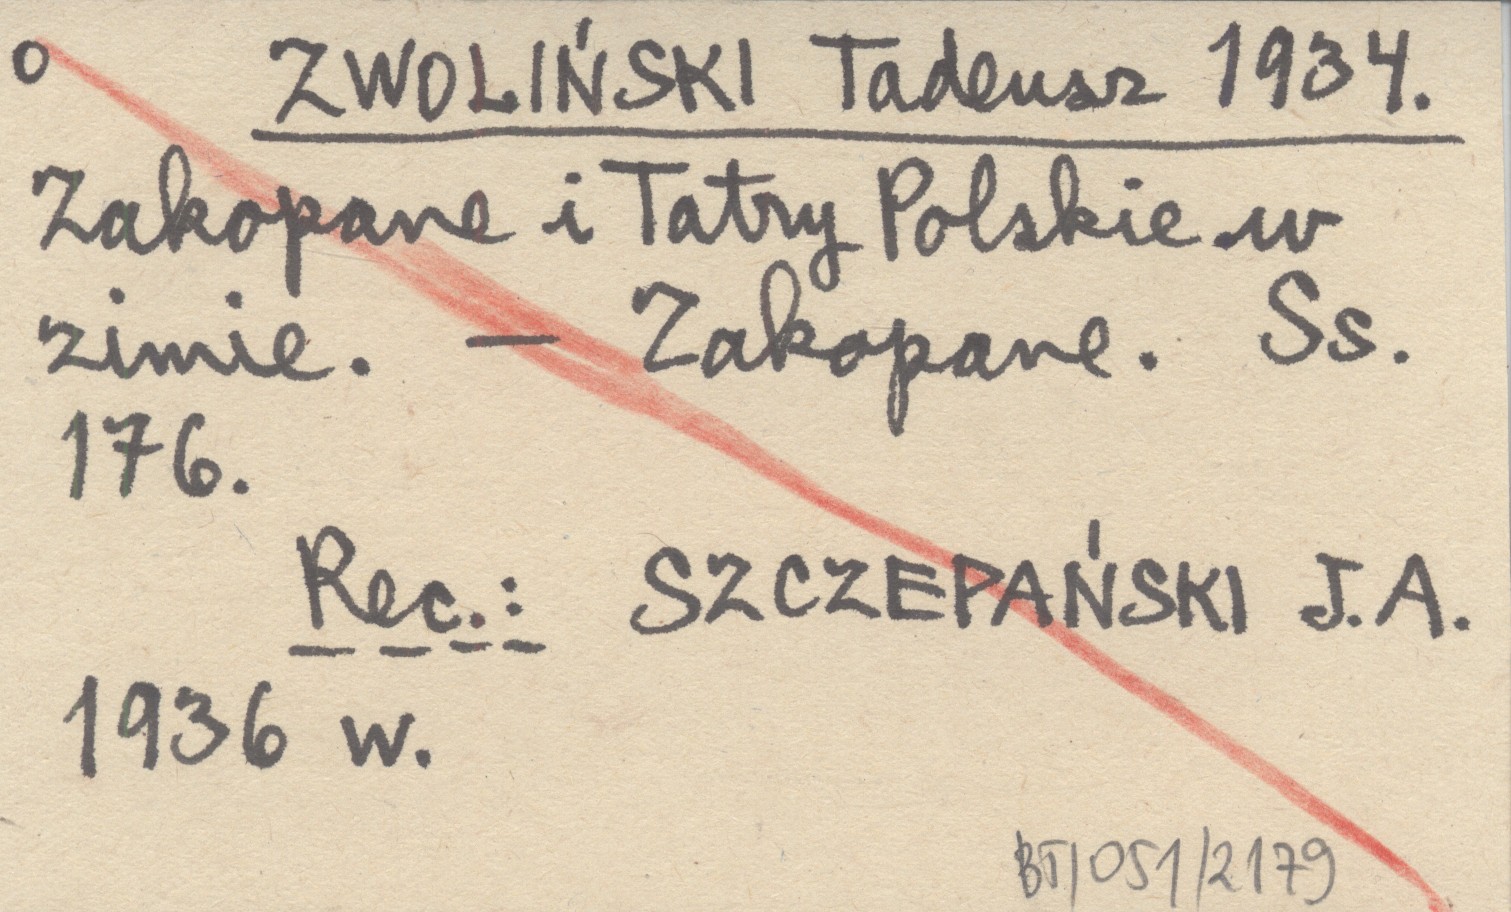 o ZWOLIŃSKI Tadeusz 1934.
Zakopane i Tatry Polskie w
zimie. – Zakopane. Ss.
176.
Rec.: SZCZEPAŃSKI J.A.
1936 w.
BT/051/2179